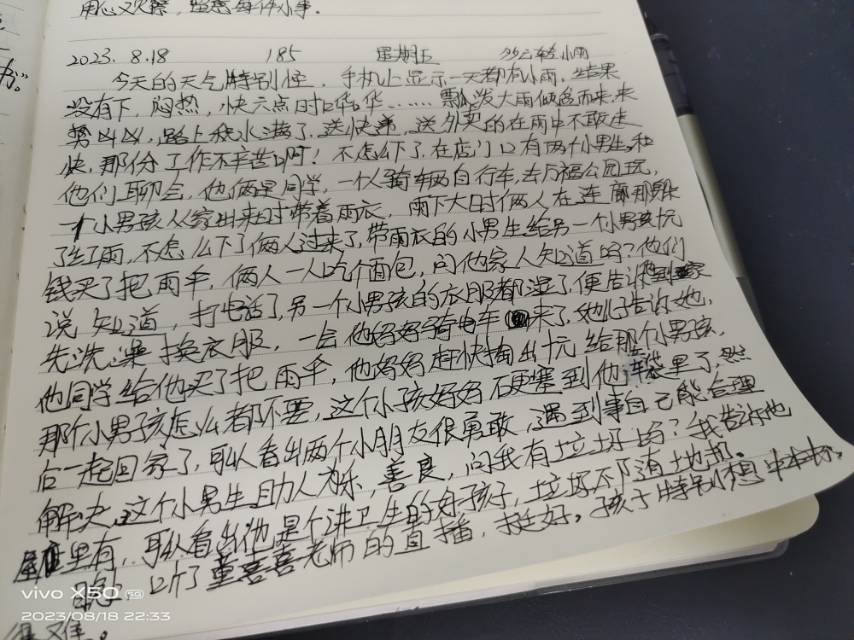 用心又观察，留意每件小事。
书"。
2023.8.18 185 星期五 多云轻小雨
今天的天气特别怪，手机上显示一天都有小雨，结果
没有下，闷热，快六点时哗华……瓢泼大雨倾盆而来，来
势凶凶，路上积水满了，送快递，送外卖的在雨中不敢走
快，那份工作不辛苦啊！不怎么下了，在店门口有两个小男生，和
他们聊会，他俩是同学，一人骑车两自行车，去万福公园玩，
一个小男孩从家出来时带着雨衣，雨下大时俩人在连廊那躲
了会雨，不怎么下了俩人过来了，带雨衣的小男生给另一个小男孩拾元
钱买了把雨伞，俩人一人吃个面包，问他家人知道吗？他们
说知道，打电话了，另一个小男孩的衣服都湿了，便告诉他到家
先洗澡换衣服，一会他妈妈骑电车来了，她儿子告诉她，
他同学给他买了把雨伞，他妈妈赶快掏出拾元给那个男孩，
那个小男孩怎么都不要，这个小孩妈妈硬塞到他车袋里了，然
后一起回家了，可以看出两个小朋友很勇敢，遇到事自己能合理
解决，这个小男生助人为乐，善良，问我有垃圾吗？我告诉他
屋里有，可以看出他是个讲卫生的好孩子，垃圾不随地扔。
晚上听了董喜喜老师的直播，挺好，孩子特别想
vivo X50 5G
2023/08/18 22:33